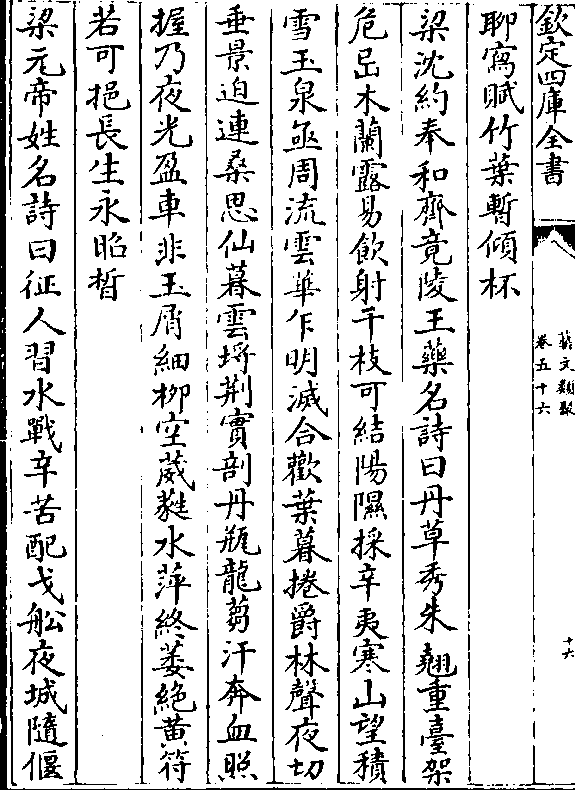 欽定四庫全書
藝文類聚
卷五十六
十六
聊寫賦竹葉暫傾杯
梁沈約奉和齊竟陵王藥名詩曰丹草秀朱翹重臺架
危岊木蘭露易飲射干枝可結陽隰採辛夷寒山望積
雪玉泉亟周流雲華乍明滅合歡葉暮捲爵林聲夜切
垂景迫連桑思仙暮雲埒荆實剖丹瓶龍芻汗奔血照
握乃夜光盈車非玉屑細柳空葳蕤水萍終萎絶黄符
若可挹長生永昭晢
梁元帝姓名詩曰征人習水戰辛苦配戈船夜城隨偃